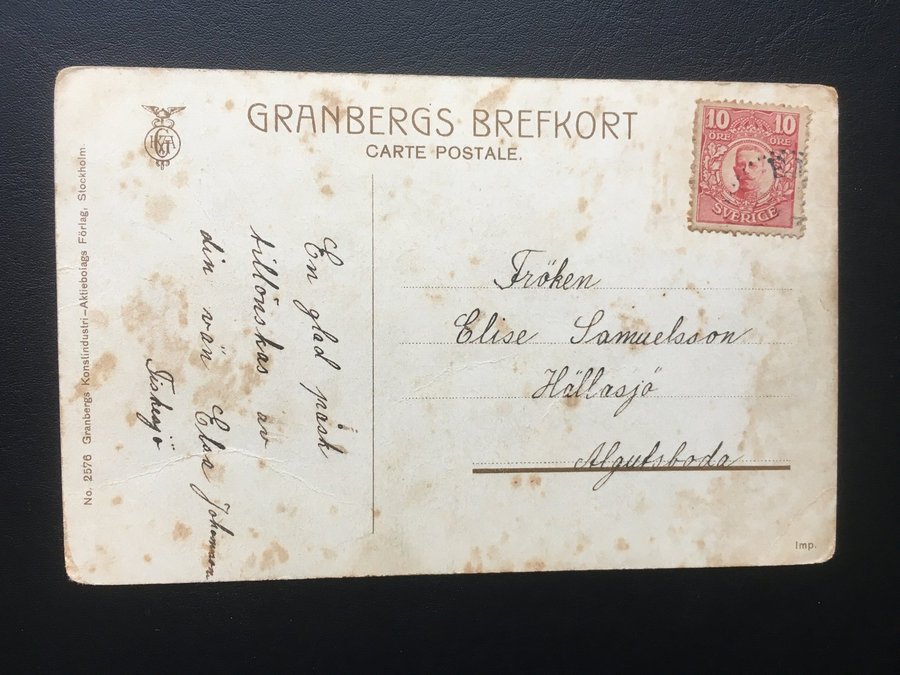 GRANBERGS BREFKORT
CARTE POSTALE.
10 10
ÖRE ÖRE
SVERIGE
No. 2576 Granbergs Konstindustri-Aktiebolags Förlag, Stockholm
En glad påsk
tillönskas av
din vän Elsa Johansson
Fiskesjö
Fröken
Elise Samuelsson
Hällasjö
Algutsboda
Imp.